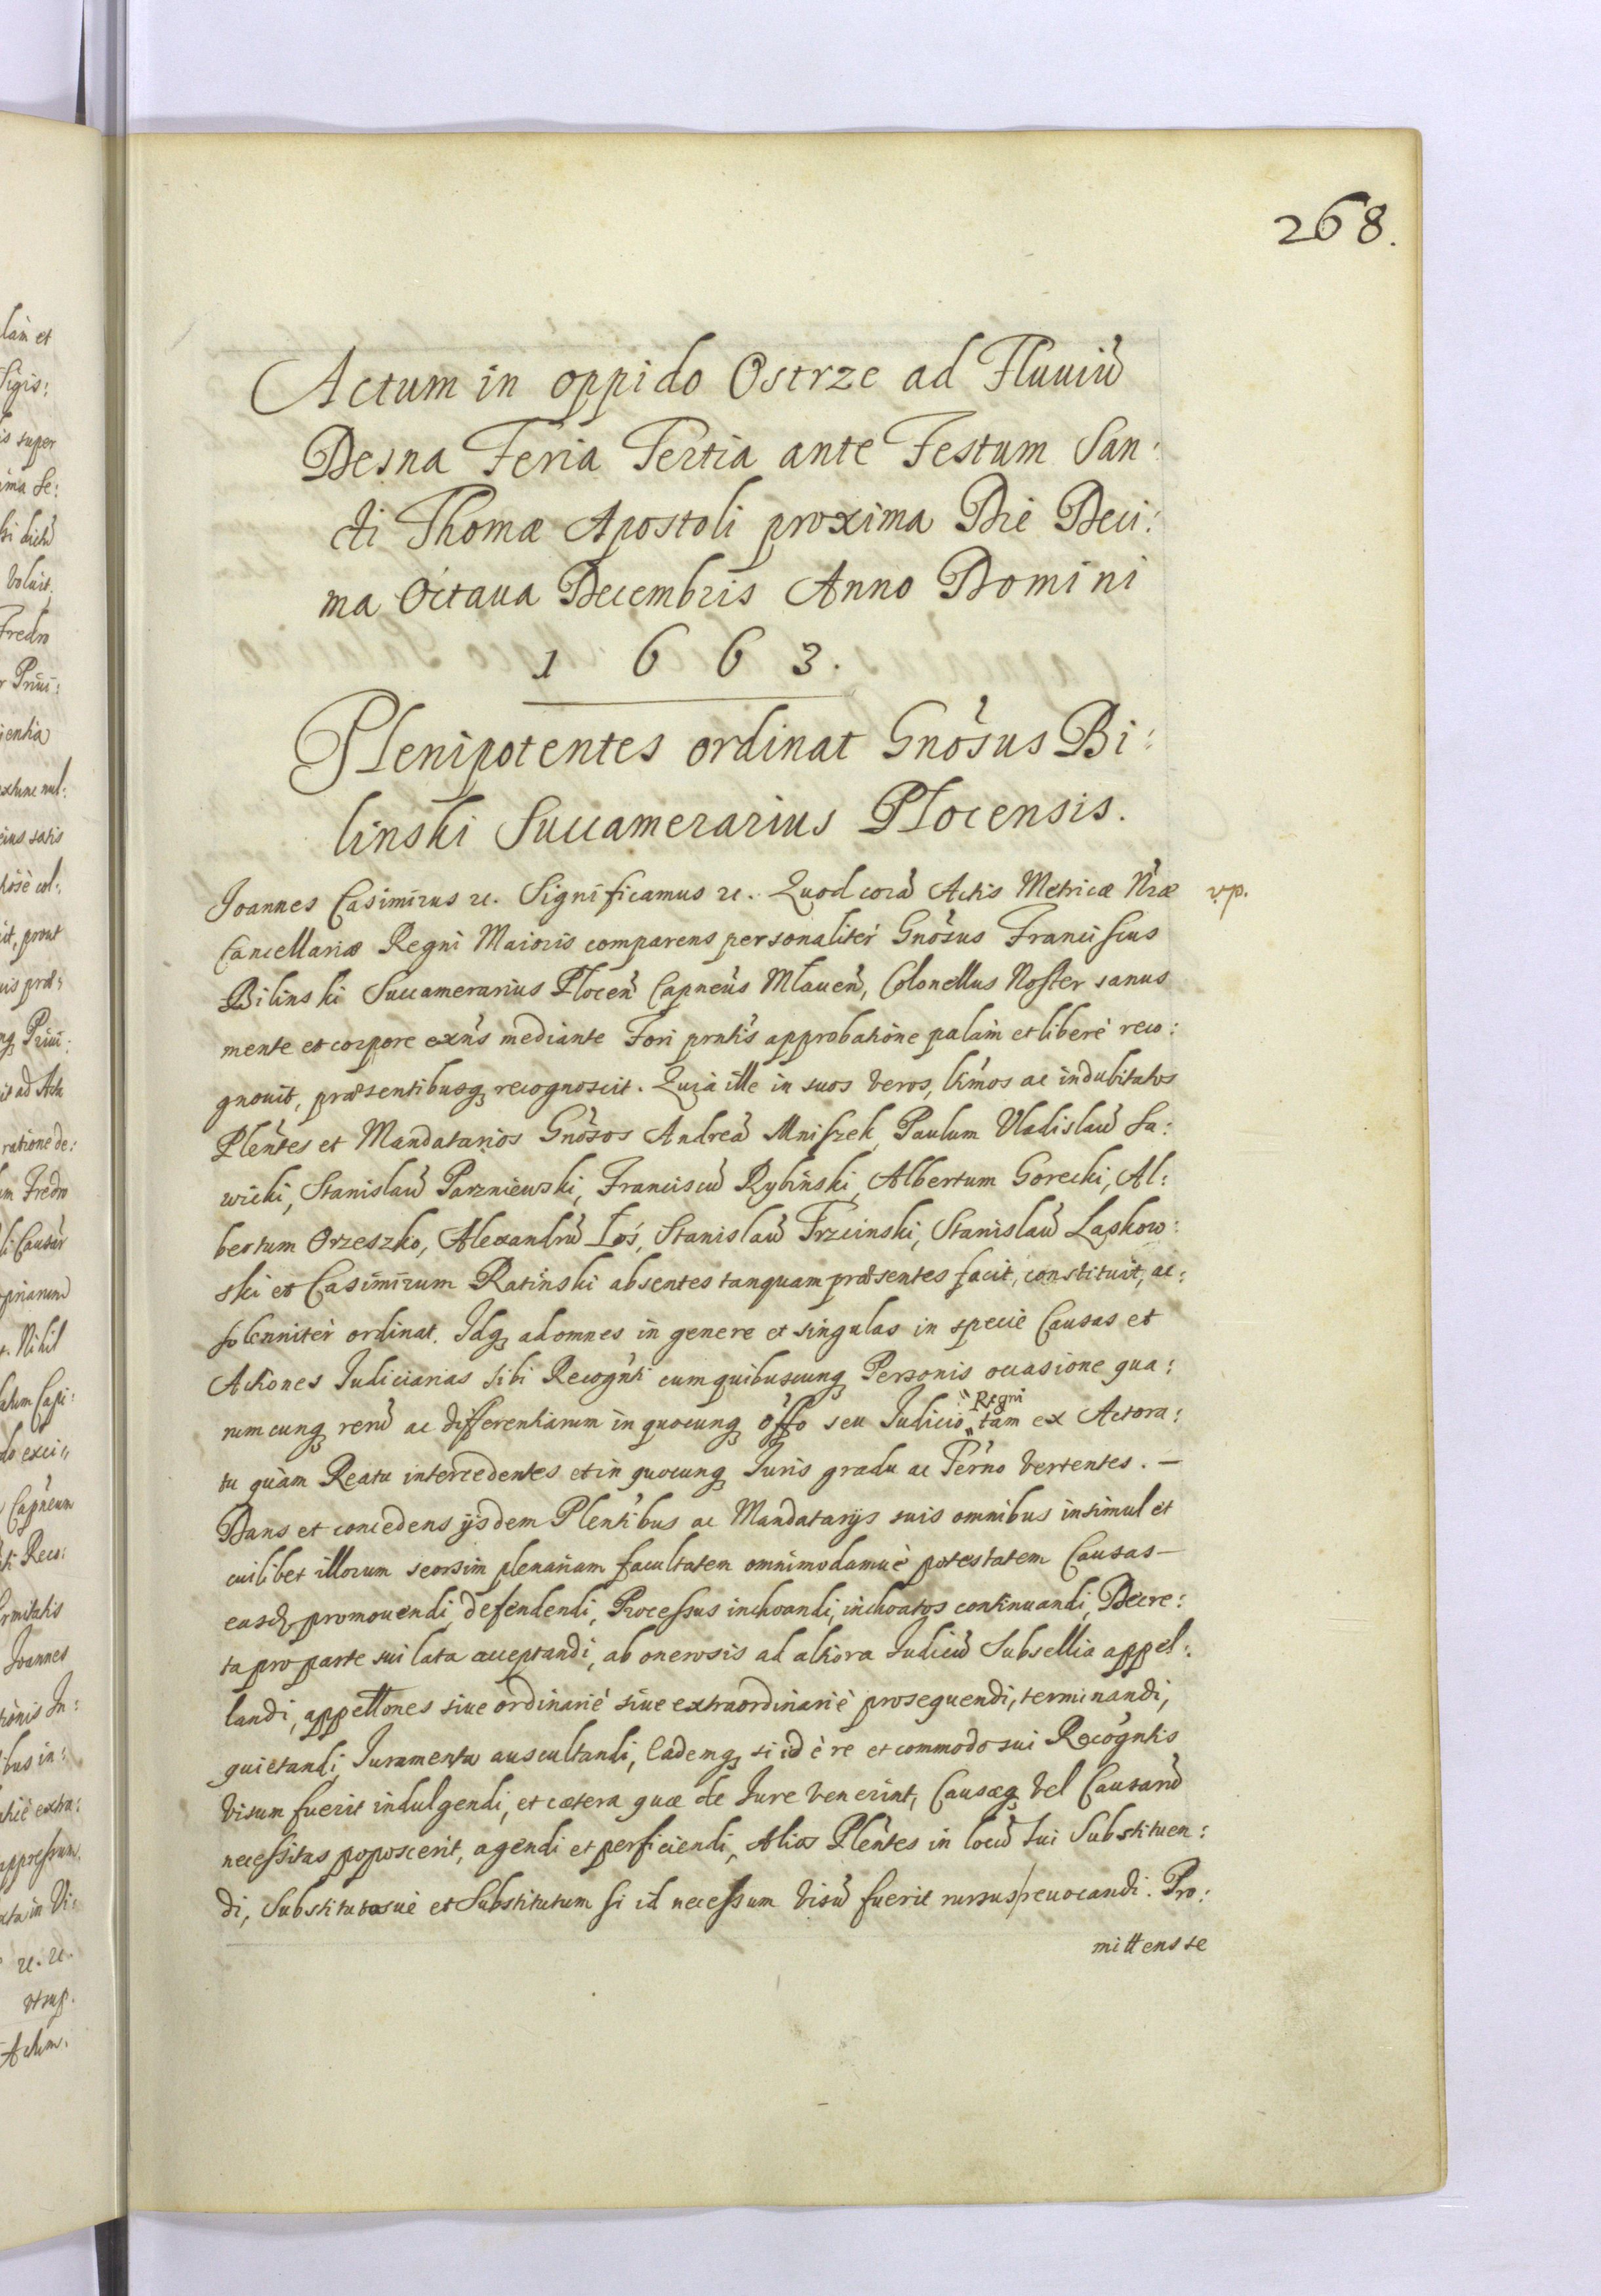 268.
Actum in oppido Ostrze ad Fluuiũ
Desna Feria Tertia ante Festum San:
cti Thomæ Apostoli proxima Die Deci:
ma Octaua Decembris Anno Domini
1663.
Plenipotentes ordinat Gnõsus Bi:
linski Succamerarius Plocensis.
Joannes Casimirus etc. Significamus etc. Quod corã Actis Metricæ Nræ
vp.
Cancellariæ Regni Maioris comparens personalitèr Gnõsus Franciscus
Bilinski Succamerarius Plocen̄ Capneũs Mławen̄, Colonellus Noster sanus
mente et corpore exñs mediante Fori prntis approbatione palàm et liberè reco:
gnouit, præsentibusq́ recognoscit. Quià ille in suos veros, ltimos ac indubitatos
Plentes et Mandatarios Gnõsos Andreã Mniszek, Paulum Vladislaũ Sa:
wicki, Stanislaũ Parzniewski, Franciscũ Rybiński, Albertum Gorecki, Al:
bertum Orzeszko, Alexandrũ Łoś, Stanislaũ Trzcinski, Stanislaũ Laskow:
ski et Casimirum Ratinski absentes tanquam præsentes facit, constituit, ac:
solennitèr ordinat. Idq́ ad omnes in genere et singulas in specie Causas et
Actiones Judiciarias sibi Recognti cum quibuscunq́ Personis occasione qua:
rumcunq́ rerũ ac differentiarum in quocunq́ offo seu Judicio Regni tam ex Actora:
tu quàm Reatu intercedentes et in quocunq́ Juris gradu ac Terno vertentes. –
Dans et concedens ijsdem Plentibus ac Mandatarijs suis omnibus insimul et
cuilibet illorum seorsim plenariam facultatem omnimodamuè potestatem Causas –
easd promouendi, defendendi, Processus inchoandi, inchoatos continuandi, Decre:
ta pro parte sui lata acceptandi, ab onerosis ad altiora Judiciũ Subsellia appel:
landi, appellones siue ordinariè siue extraordinariè prosequendi, terminandi,
quietandi, Juramenta auscultandi, Eademq́ si id è re et commodo sui Recogntis
visum fuerit indulgendi, et cætera quæ de Jure venerint, Causæq́ vel Causarũ
necessitas poposcerit, agendi et perficiendi, Alios Plentes in locũ sui Substituen:
di, Substitutosuè et Substitutum si id necessum visũ fuerit rursus revocandi. Pro:
mittens se